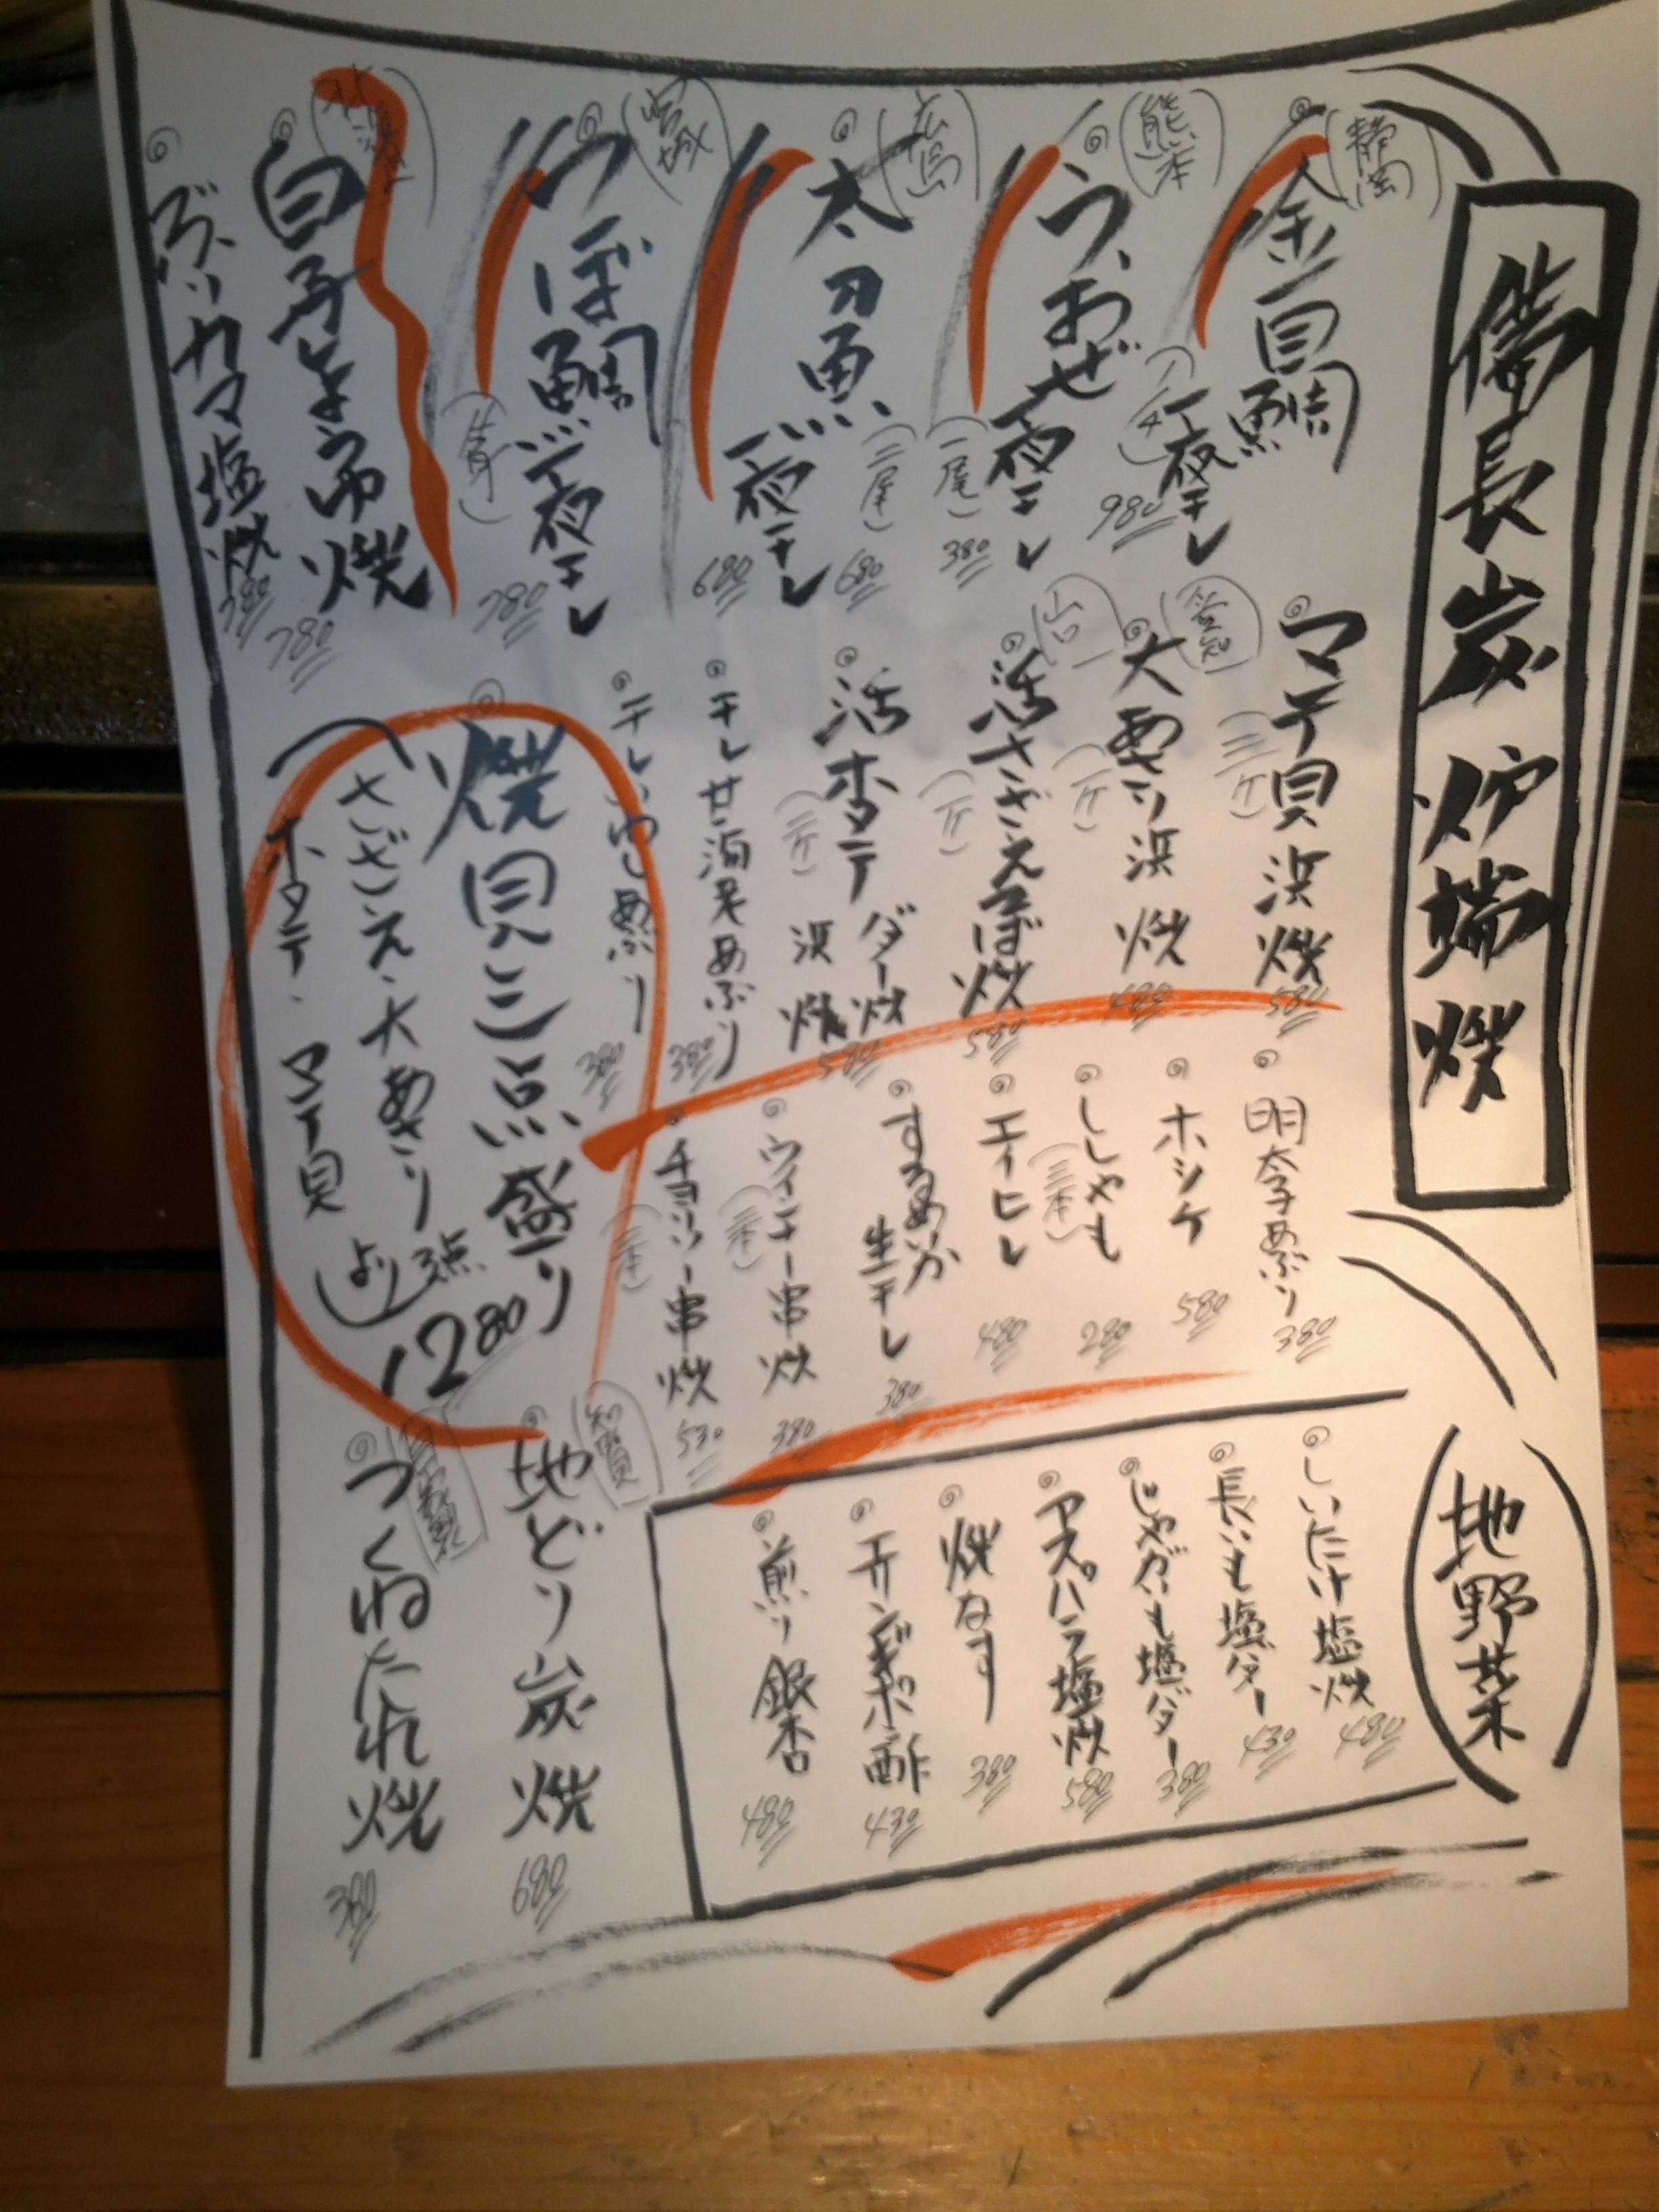 備長炭炉端焼
静岡
金目鯛
一夜干し
980
熊本
うおぜ
一夜干し
(一尾)
380
(二尾)
680
広島
太刀魚
一夜干し
680
宮城
つぼ鯛
一夜干し
780
白子しょう油焼
780
ぶりカマ塩焼
780
マテ貝浜焼
(三ケ)
580
愛知
大あさり浜焼
(一ケ)
480
山口
活さざえつぼ焼
(一ケ)
580
活ホタテ
バター焼
浜焼
(二ケ)
580
干しほたる
380
干しいわしあぶり
380
焼貝三点盛り
(さざえ・大あさり
ホタテ・マテ貝
より3点)
1280
明太子あぶり
380
ホッケ
580
ししゃも
(三本)
280
エイヒレ
480
するめいか
生干し
380
ウインナー串焼
(二本)
380
チョリソー串焼
(二本)
530
地野菜
しいたけ塩焼
480
長いも塩バター
430
じゃがいも塩バター
380
アスパラ塩焼
580
焼なす
380
エリンギポン酢
430
煎り銀杏
480
地どり炭焼
680
自家製
つくねたれ焼
380